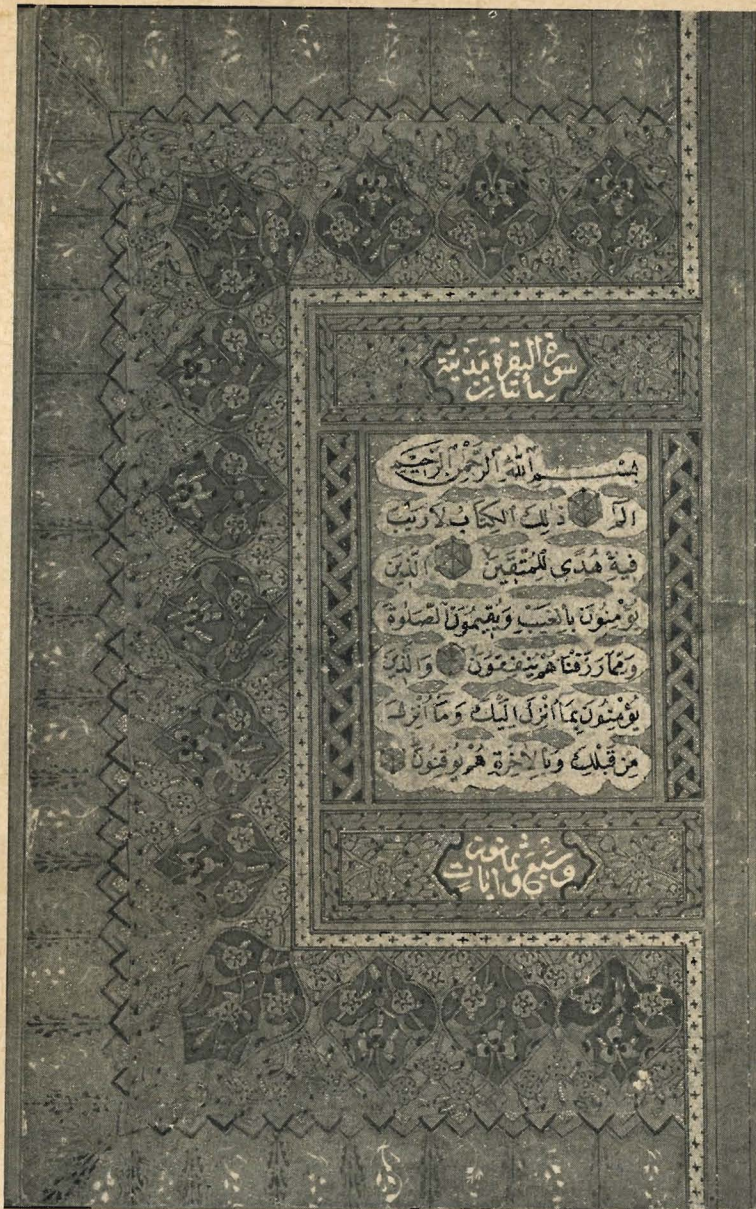 سورة البقرة مدنية
مائتان
بِسْمِ اللهِ الرَّحْمٰنِ الرَّحِيمِ
الٓمٓ ذٰلِكَ الْكِتَابُ لَا رَيْبَ
فِيهِ هُدًى لِلْمُتَّقِينَ الَّذِينَ
يُؤْمِنُونَ بِالْغَيْبِ وَيُقِيمُونَ الصَّلٰوةَ
وَمِمَّا رَزَقْنَاهُمْ يُنْفِقُونَ وَالَّذِينَ
يُؤْمِنُونَ بِمَا اُنْزِلَ اِلَيْكَ وَمَا اُنْزِلَ
مِنْ قَبْلِكَ وَبِالْاٰخِرَةِ هُمْ يُوقِنُونَ
وسبع و ايات